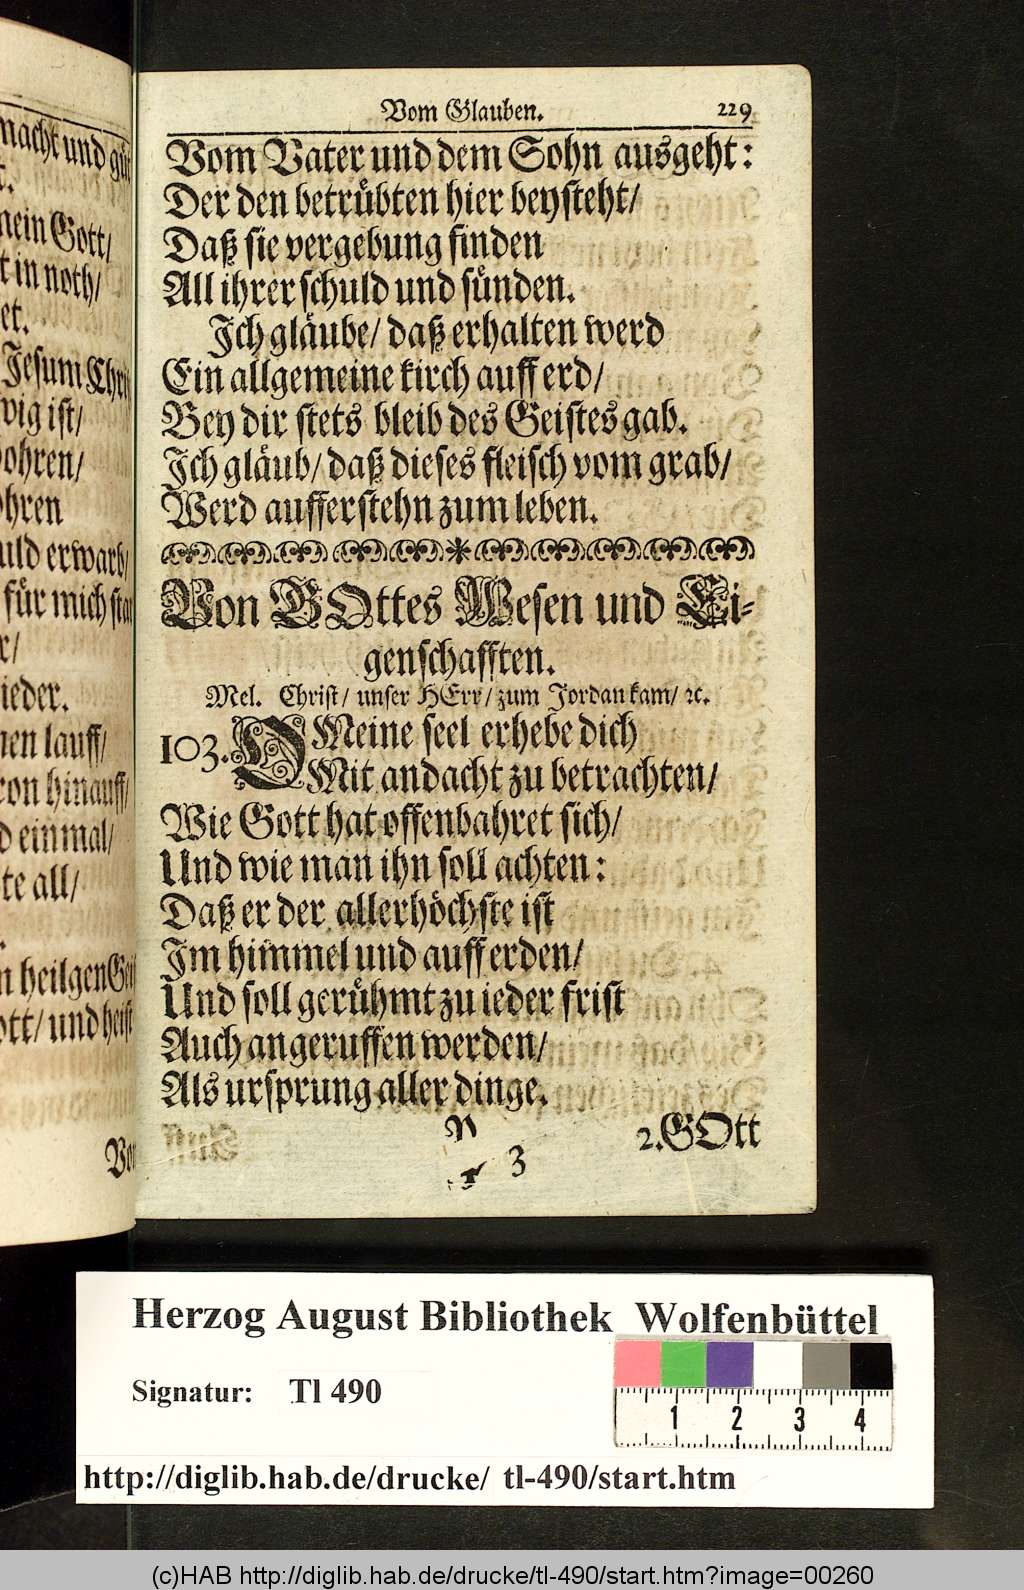 macht und
mein Gott/
t in noth/
et.
Jesum Chri
wig ist/
bohren/
ohren
uld erwarb/
für mich star
r/
lieder.
nen lauff/
ron hinauff/
d einmal/
te all/
n heilgen Gei
ott/ und heist
Vo
Vom Glauben. 229
Vom Vater und dem Sohn ausgeht:
Der den betrübten hier beysteht/
Daß sie vergebung finden
All ihrer schuld und sünden.
Ich gläube/ daß erhalten werd
Ein allgemeine kirch auff erd/
Bey dir stets bleib des Geistes gab.
Ich gläub/ daß dieses fleisch vom grab/
Werd aufferstehn zum leben.
Von GOttes Wesen und Ei-
genschafften.
Mel. Christ/ unser HErr/ zum Jordan kam/ ꝛc.
103. O Meine seel erhebe dich
Mit andacht zu betrachten/
Wie Gott hat offenbahret sich/
Und wie man ihn soll achten:
Daß er der allerhöchste ist
Im himmel und auff erden/
Und soll gerühmt zu ieder frist
Auch angeruffen werden/
Als ursprung aller dinge.
3 2. GOtt
Herzog August Bibliothek Wolfenbüttel
Signatur: Tl 490
1 2 3 4
http://diglib.hab.de/drucke/ tl-490/start.htm
(c)HAB http://diglib.hab.de/drucke/tl-490/start.htm?image=00260